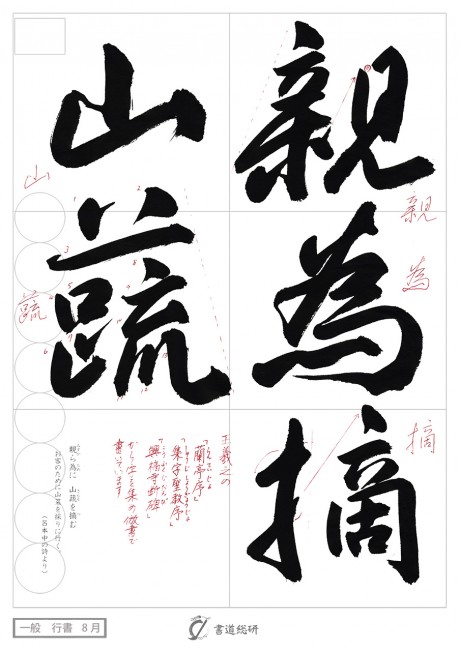 親為摘
山蔬
親
為
摘
王羲之の
「蘭亭序」
「集字聖教序」
「興福寺断碑」
書いています
山
蔬
親ら為に 山蔬を摘む
お客のために山菜を採りに行く。
(呂本中の詩より)
一般 行書 8月
書道総研